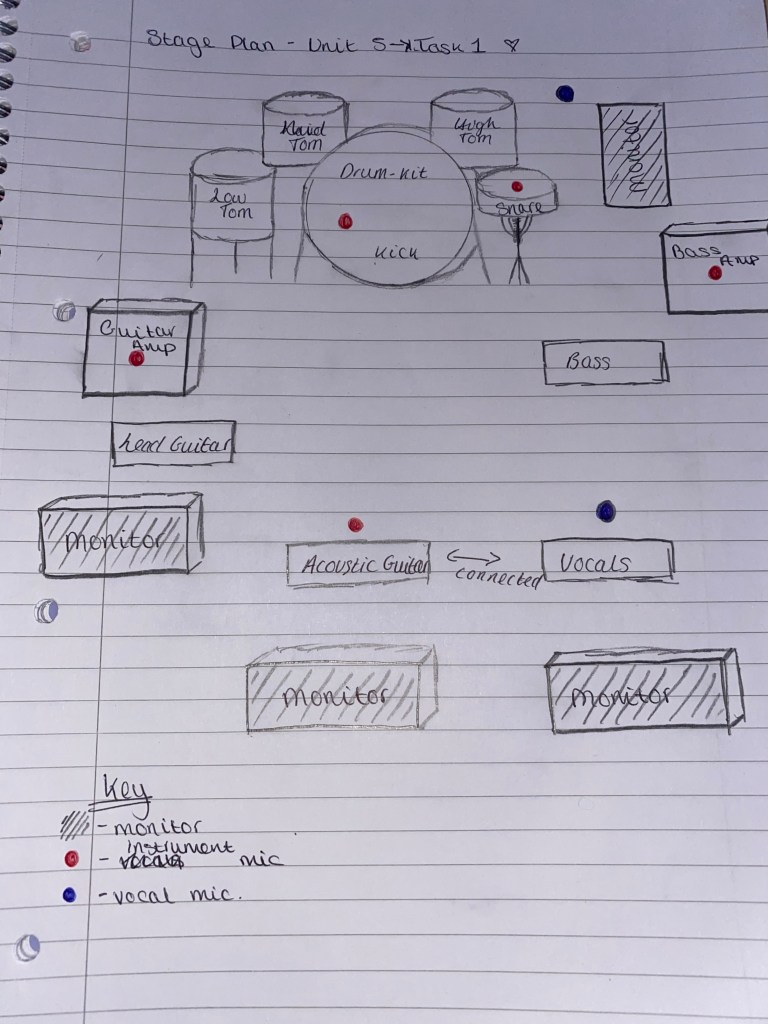 Stage Plan - Unit 5 → Task 1 ♡
Maid
Tom
Hugh
Tom
monitor
Drum-Kit
Low
Tom
Snare
Kick
Bass
Amp
Guitar
Amp
Bass
Lead Guitar
monitor
Acoustic Guitar
connected
Vocals
monitor
monitor
Key
- monitor
instrument
- vocals mic
- vocal mic.